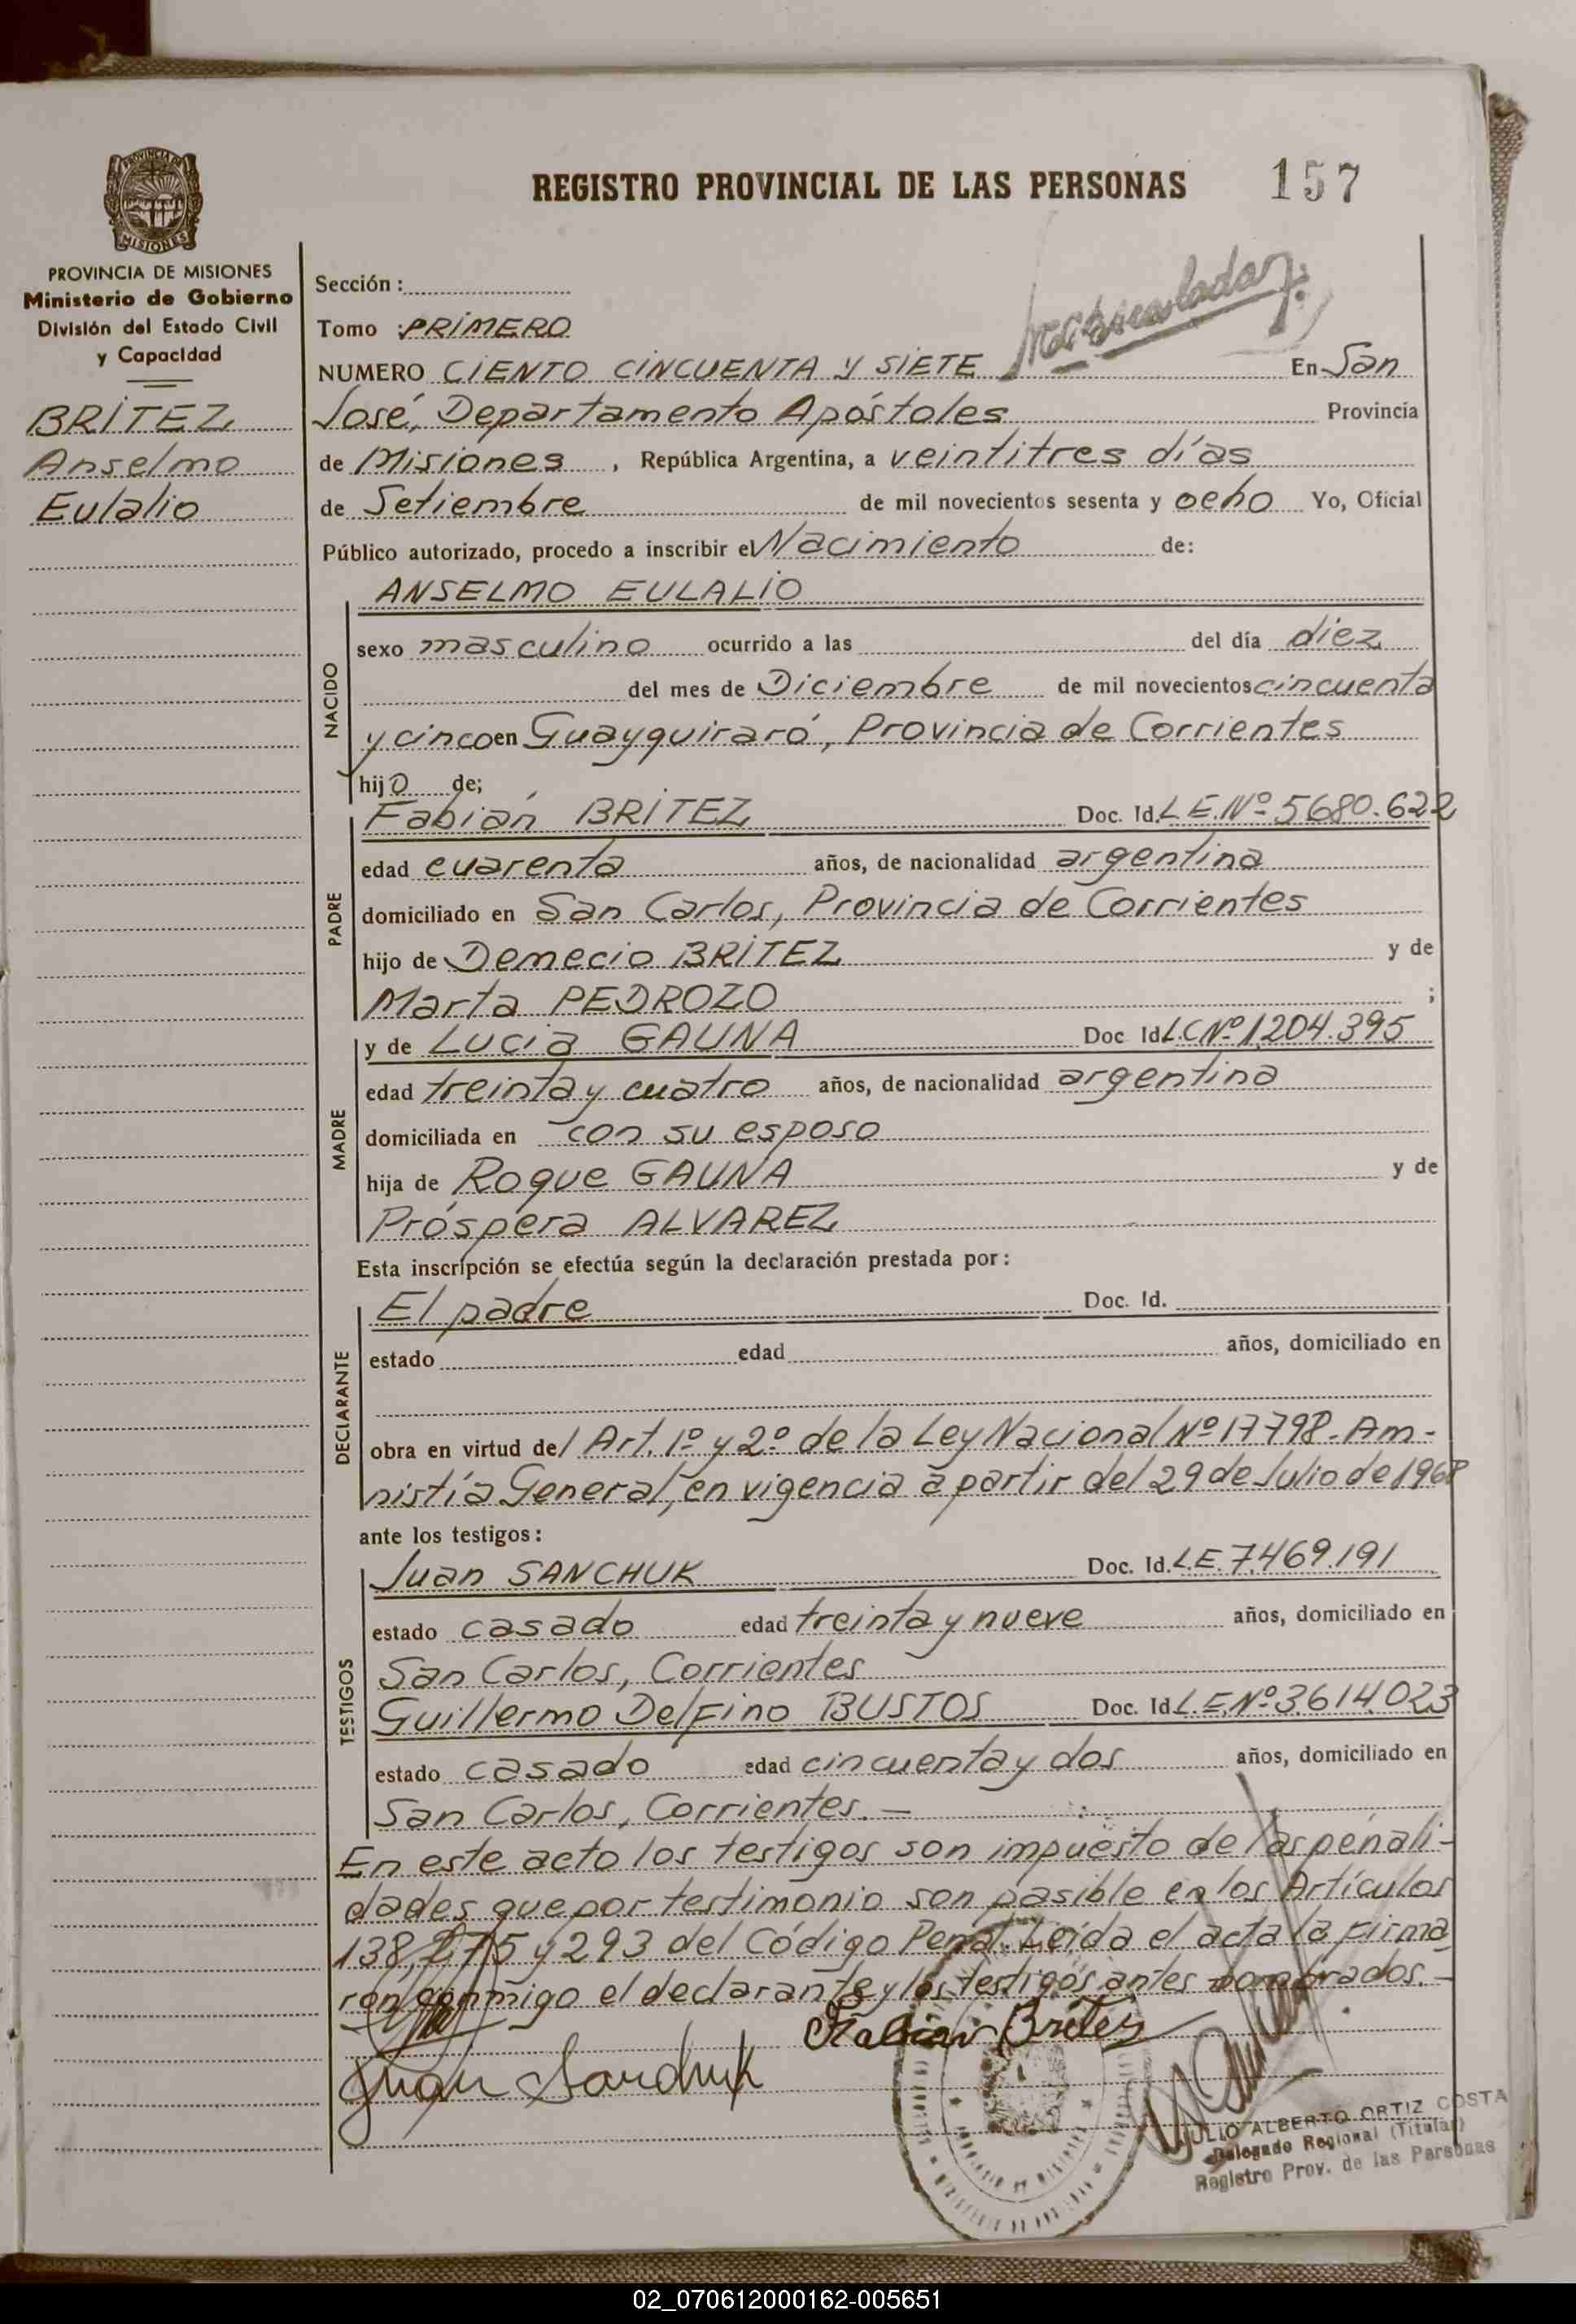 REGISTRO PROVINCIAL DE LAS PERSONAS 157
PROVINCIA DE
MISIONES
PROVINCIA DE MISIONES
Ministerio de Gobierno
División del Estado Civil
y Capacidad
BRÍTEZ
Anselmo
Eulalio
Sección :
Tomo : PRIMERO
NUMERO CIENTO CINCUENTA Y SIETE En San
José, Departamento Apóstoles Provincia
de Misiones , República Argentina, a veintitres días
de Setiembre de mil novecientos sesenta y ocho Yo, Oficial
Público autorizado, procedo a inscribir el Nacimiento de:
ANSELMO EULALIO
NACIDO
sexo masculino ocurrido a las del día diez
del mes de Diciembre de mil novecientos cincuenta
y cinco en Guayquiraró, Provincia de Corrientes
hijo de;
PADRE
Fabián BRÍTEZ Doc. Id. L.E.Nº 5680.622
edad cuarenta años, de nacionalidad argentina
domiciliado en San Carlos, Provincia de Corrientes
hijo de Demecio BRÍTEZ y de
Marta PEDROZO ;
MADRE
y de Lucía GAUNA Doc Id L.C.Nº 1.204.395
edad treinta y cuatro años, de nacionalidad argentina
domiciliada en con su esposo
hija de Roque GAUNA y de
Próspera ALVAREZ
Esta inscripción se efectúa según la declaración prestada por:
DECLARANTE
El padre Doc. Id.
estado edad años, domiciliado en
obra en virtud del Art. 1º y 2º de la Ley Nacional Nº 17798-Am-
nistía General, en vigencia a partir del 29 de Julio de 1968
ante los testigos:
TESTIGOS
Juan SANCHUK Doc. Id. L.E. 7.469.191
estado casado edad treinta y nueve años, domiciliado en
San Carlos, Corrientes
Guillermo Delfino BUSTOS Doc. Id L.E.Nº 3.614.023
estado casado edad cincuenta y dos años, domiciliado en
San Carlos, Corrientes.-
En este acto los testigos son impuesto de las penali-
dades que por testimonio son pasible en los Artículos
138, 275 y 293 del Código Penal. Leída el acta la firma
ron conmigo el declarante y los testigos antes nombrados.-
Fabian Britez
Juan Sanchuk
JULIO ALBERTO ORTIZ COSTA
Delegado Regional (Titular)
Registro Prov. de las Personas
02_070612000162-005651